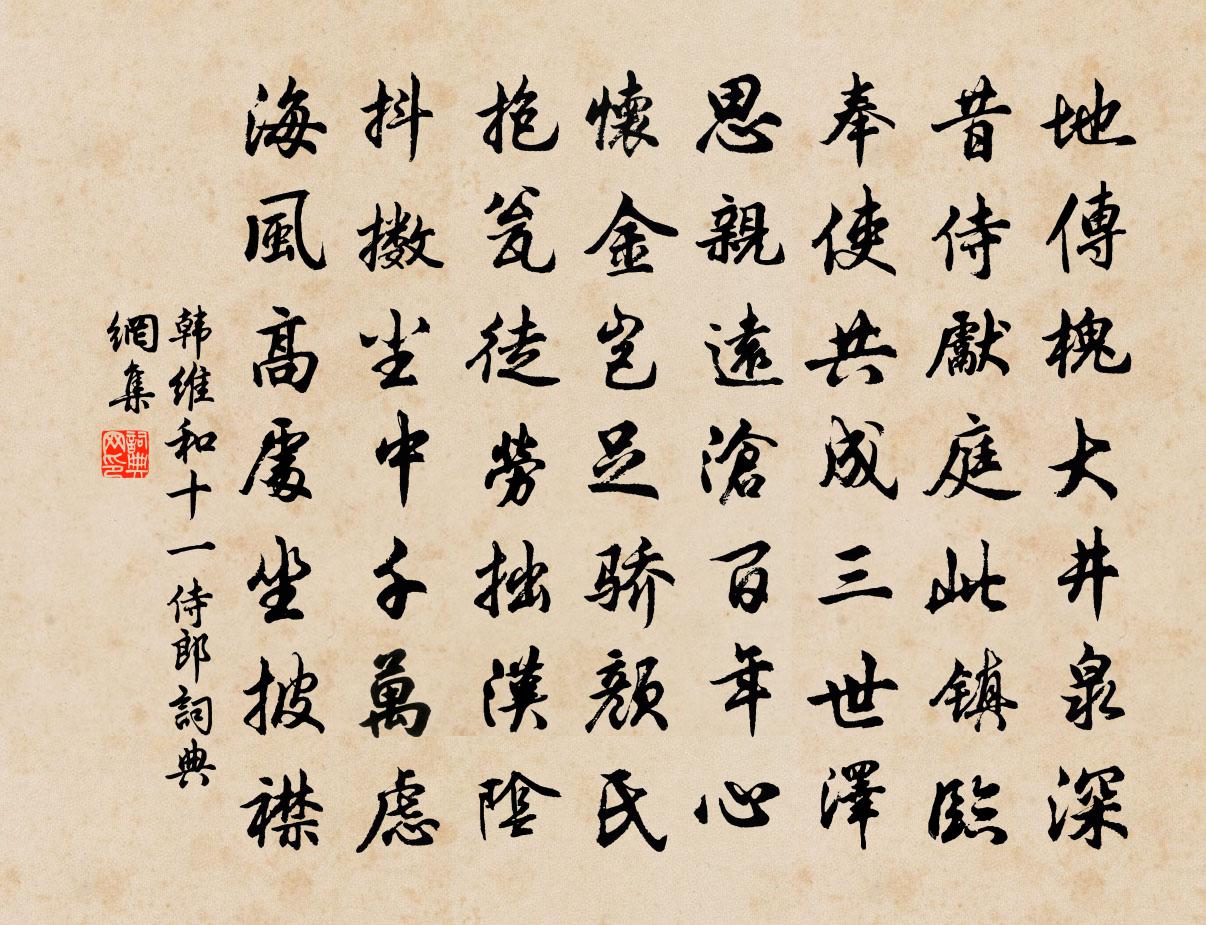 地傳槐大井泉深
昔侍嚴庭此鎮臨
奉使共成三世澤
思親遠滄百年心
懷金豈足骄顔氏
抱瓮徒勞拙漢陰
抖擻尘中千萬慮
海風高處坐披襟
韩維和十一侍郎詞典
網集
詞典
网印